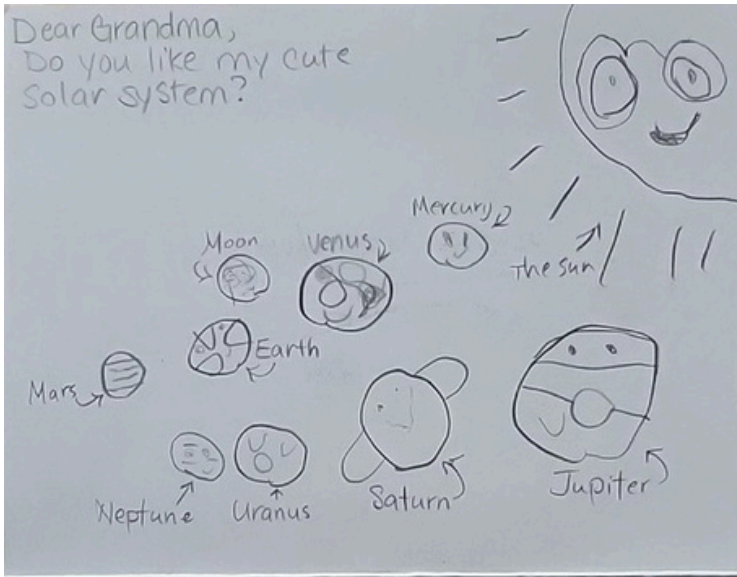 Dear Grandma,
Do you like my cute
Solar system?
Mercury
Moon
Venus
The Sun
Earth
Mars
Neptune
Uranus
Saturn
Jupiter